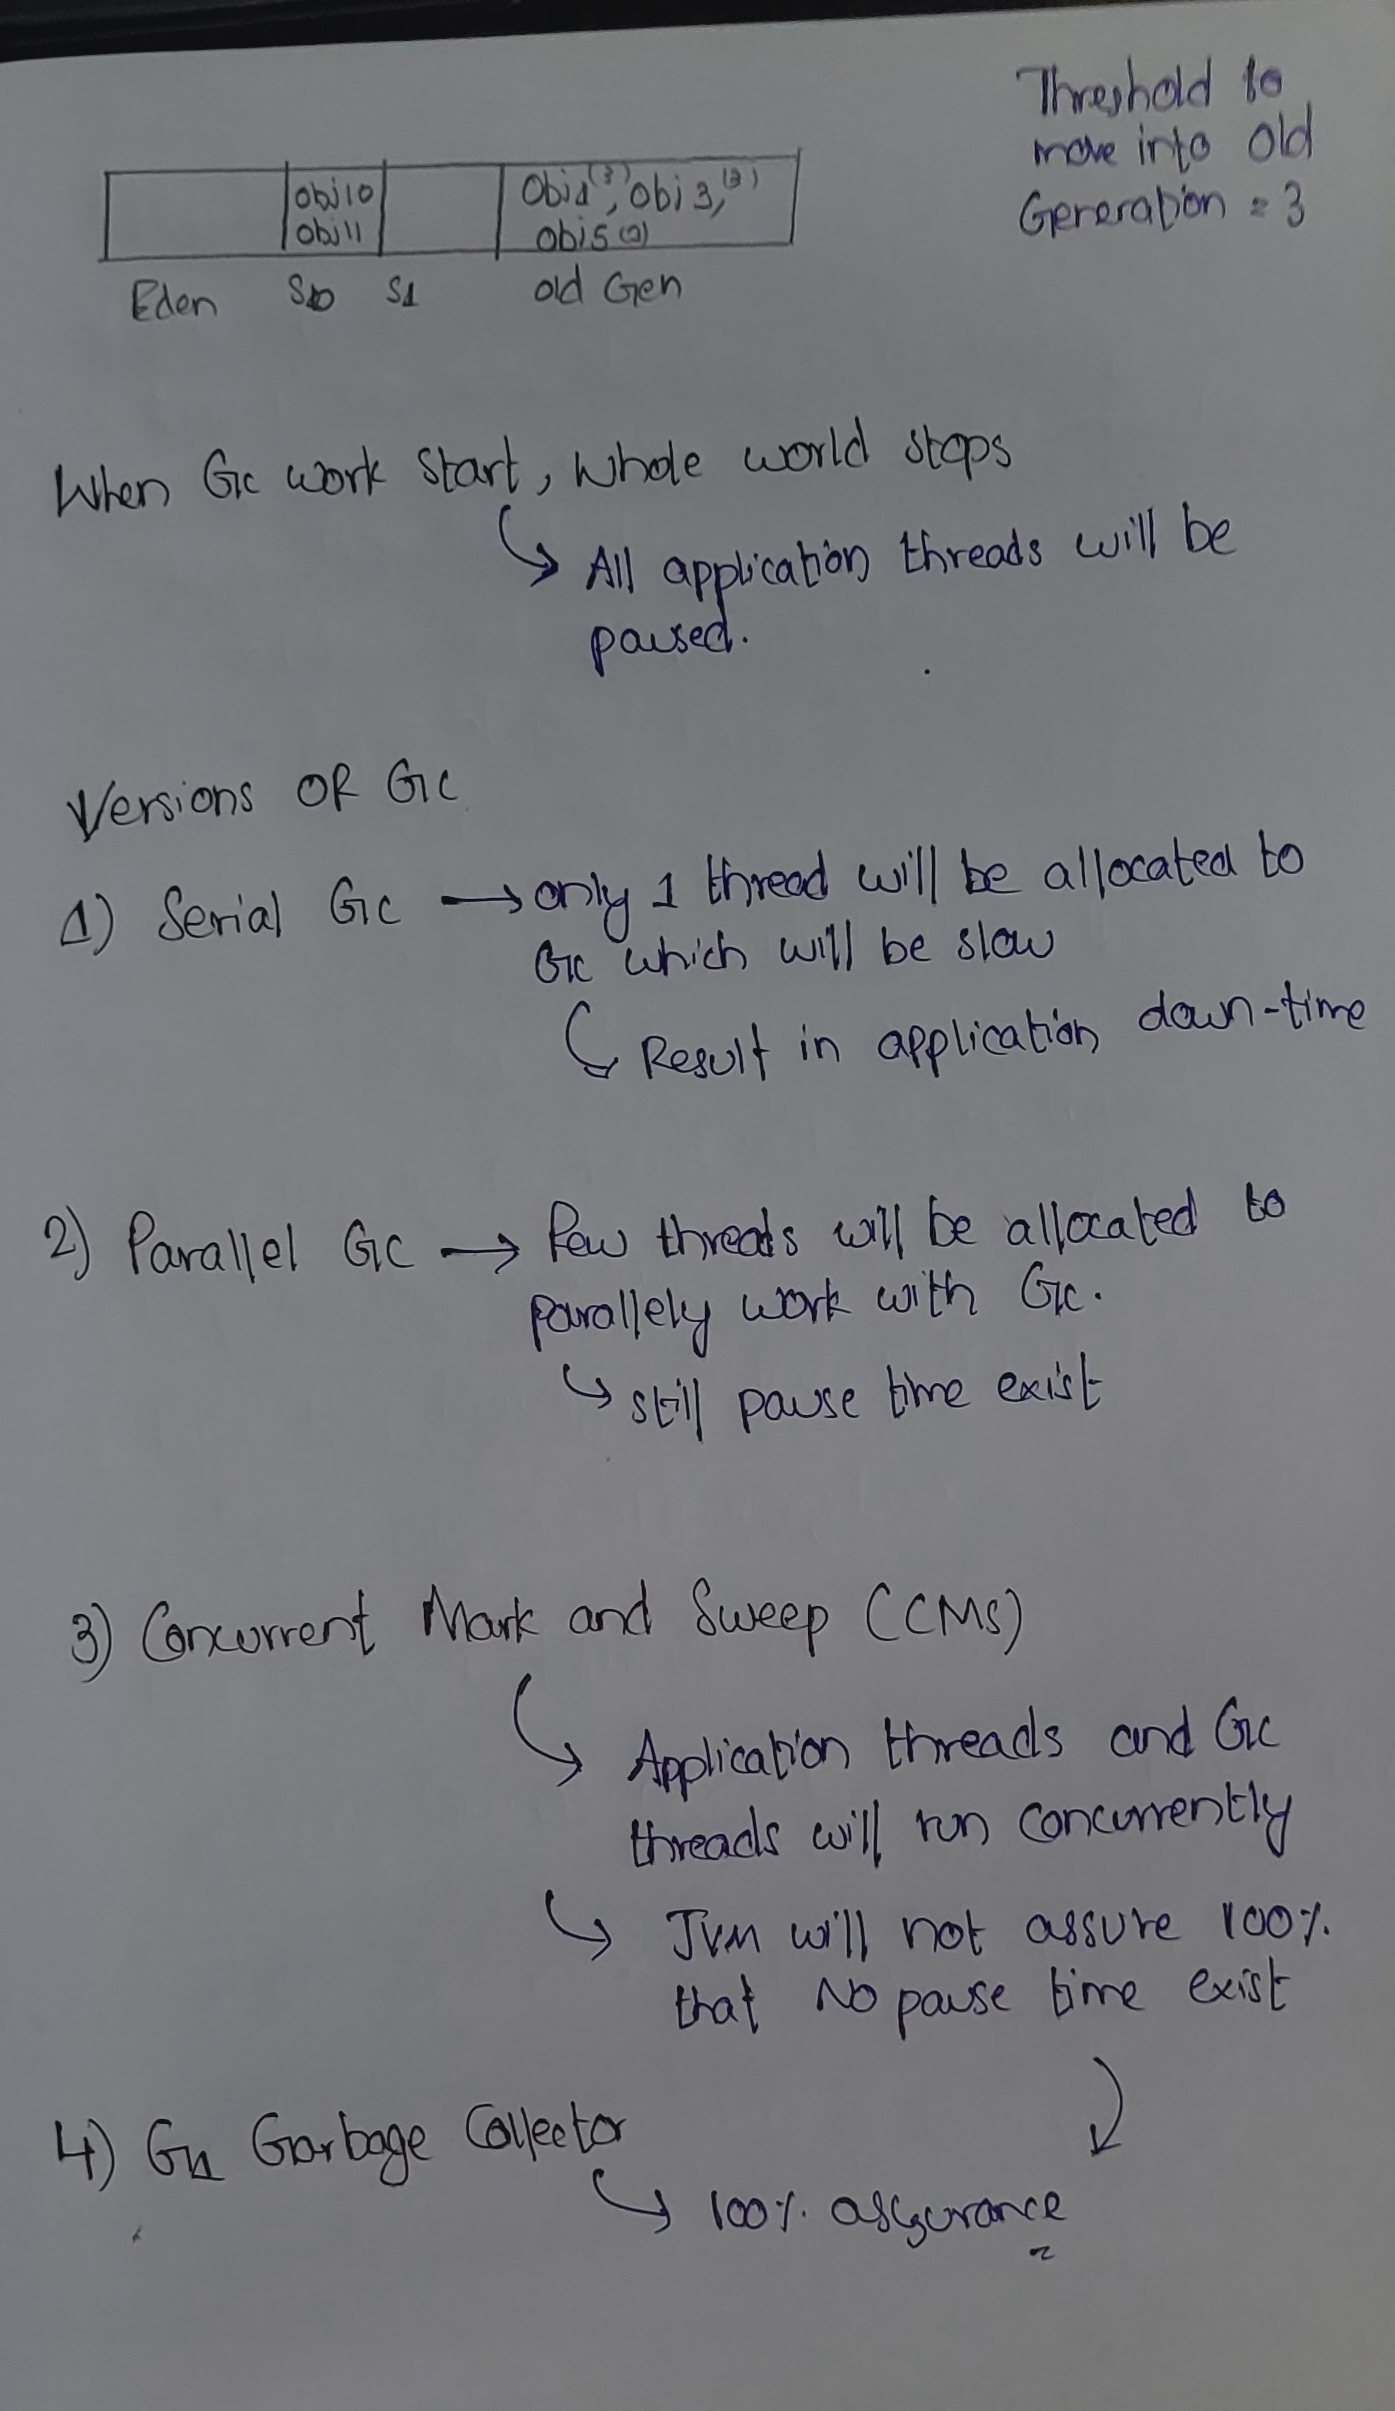 Threshold to
move into Old
Generation = 3
obj10
obj11
Obj1(3), obj3,(3)
obj5(3)
Eden S0 S1 old Gen
When GC work start, whole world stops
↳ All application threads will be
paused.
Versions OF GC
1) Serial GC → only 1 thread will be allocated to
GC which will be slow
↳ Result in application down-time
2) Parallel GC → few threads will be allocated to
parallely work with GC.
↳ still pause time exist
3) Concurrent Mark and Sweep (CMS)
↳ Application threads and GC
threads will run concurrently
↳ JVM will not assure 100%
that No pause time exist
4) G1 Garbage Collector
↳ 100% assurance